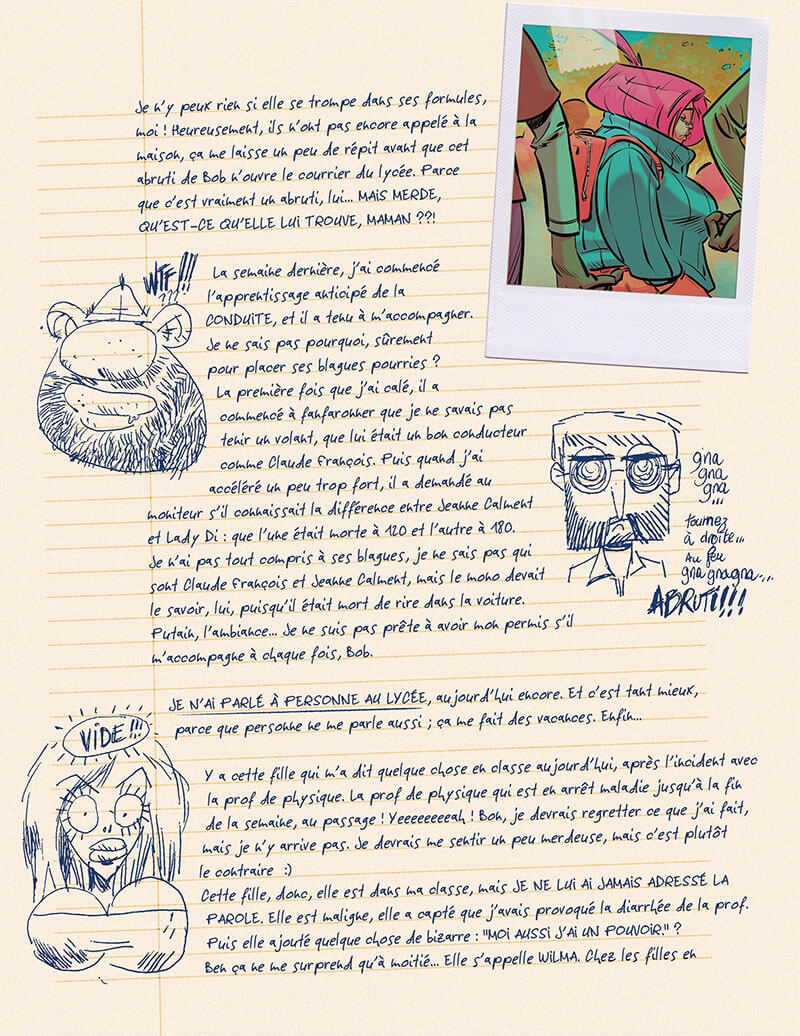 Je n'y peux rien si elle se trompe dans ses formules,
moi ! Heureusement, ils n'ont pas encore appelé à la
maison, ça me laisse un peu de répit avant que cet
abruti de Bob n'ouvre le courrier du lycée. Parce
que c'est vraiment un abruti, lui... MAIS MERDE,
QU'EST-CE QU'ELLE LUI TROUVE, MAMAN ??!
WTF!!!
???
La semaine dernière, j'ai commencé
l'apprentissage anticipé de la
CONDUITE, et il a tenu à m'accompagner.
Je ne sais pas pourquoi, sûrement
pour placer ses blagues pourries ?
La première fois que j'ai calé, il a
commencé à fanfaronner que je ne savais pas
tenir un volant, que lui était un bon conducteur
comme Claude François. Puis quand j'ai
accéléré un peu trop fort, il a demandé au
moniteur s'il connaissait la différence entre Jeanne Calment
et Lady Di : que l'une était morte à 120 et l'autre à 180.
Je n'ai pas tout compris à ses blagues, je ne sais pas qui
sont Claude François et Jeanne Calment, mais le mono devait
le savoir, lui, puisqu'il était mort de rire dans la voiture.
Putain, l'ambiance... Je ne suis pas prête à avoir mon permis s'il
m'accompagne à chaque fois, Bob.
gna
gna
gna
...
tournez
à droite...
Au feu
gna gnagna...
ABRUTI!!!
JE N'AI PARLÉ À PERSONNE AU LYCÉE, aujourd'hui encore. Et c'est tant mieux,
parce que personne ne me parle aussi ; ça me fait des vacances. Enfin...
VIDE!!!
Y a cette fille qui m'a dit quelque chose en classe aujourd'hui, après l'incident avec
la prof de physique. La prof de physique qui est en arrêt maladie jusqu'à la fin
de la semaine, au passage ! Yeeeeeeeah ! Bon, je devrais regretter ce que j'ai fait,
mais je n'y arrive pas. Je devrais me sentir un peu merdeuse, mais c'est plutôt
le contraire :)
Cette fille, donc, elle est dans ma classe, mais JE NE LUI AI JAMAIS ADRESSÉ LA
PAROLE. Elle est maligne, elle a capté que j'avais provoqué la diarrhée de la prof.
Puis elle ajouté quelque chose de bizarre : "MOI AUSSI J'AI UN POUVOIR." ?
Ben ça ne me surprend qu'à moitié... Elle s'appelle WILMA. Chez les filles en